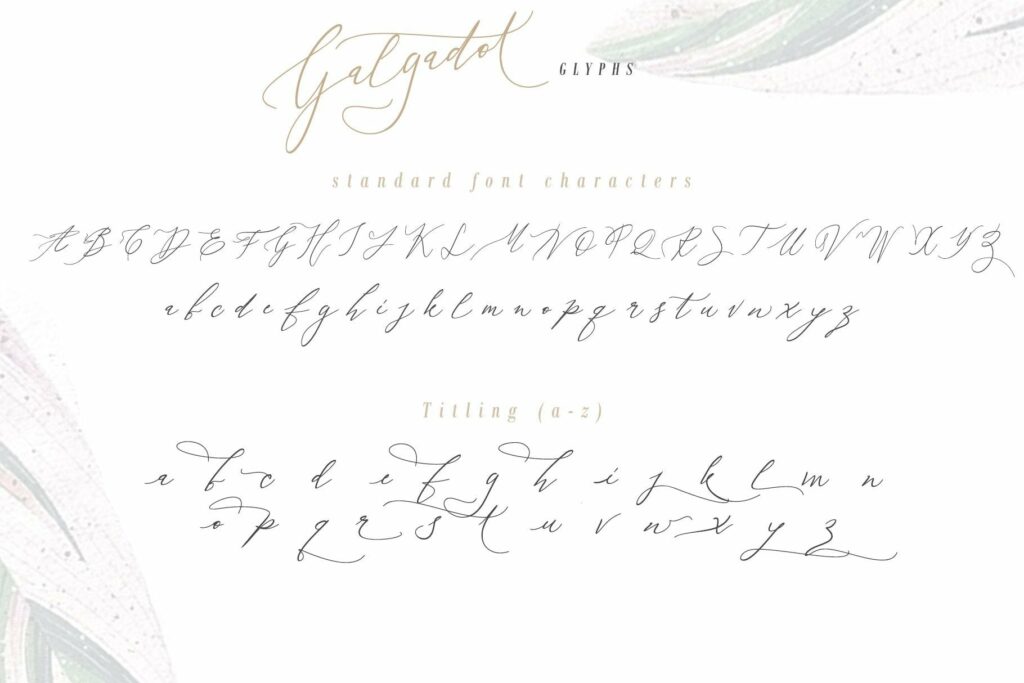 Galgadot GLYPHS
standard font characters
A B C D E F G H I J K L M N O P Q R S T U V W X Y Z
a b c d e f g h i j k l m n o p q r s t u v w x y z
Titling (a-z)
a b c d e f g h i j k l m n
o p q r s t u v w x y z